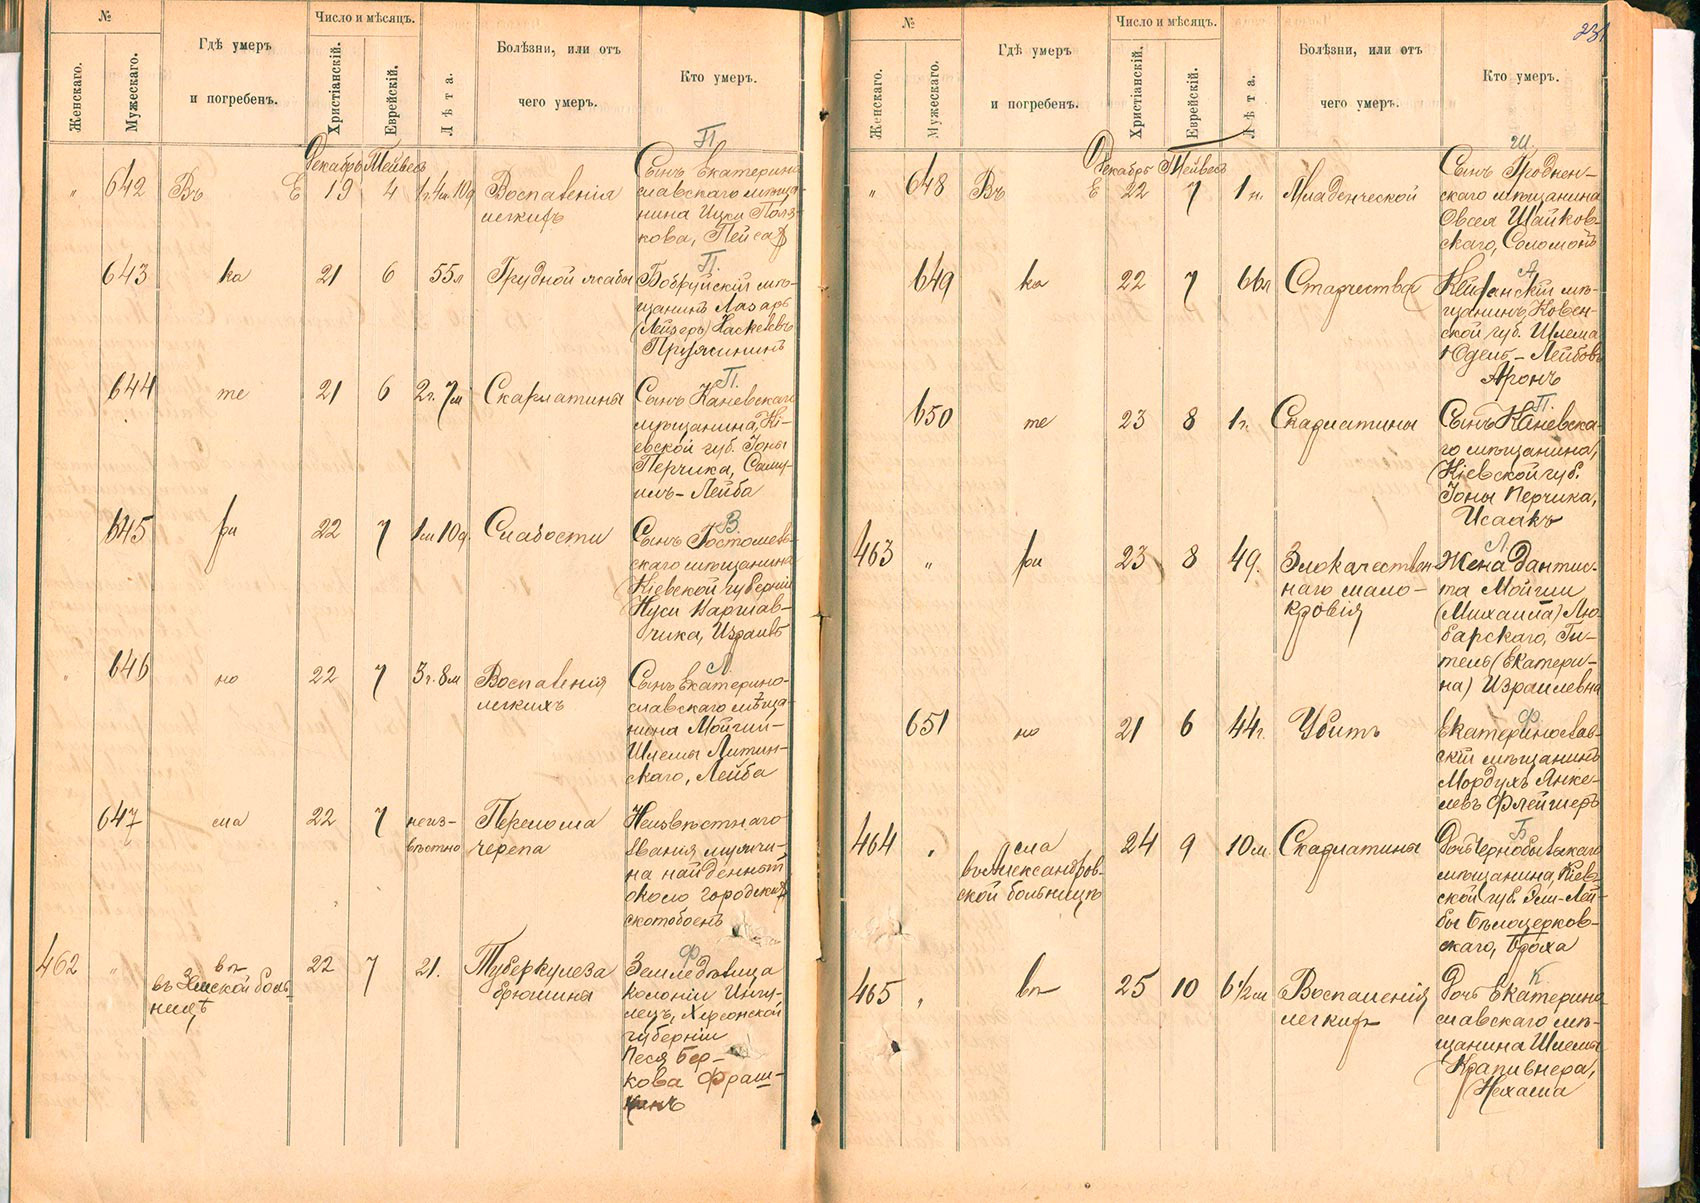 №
Число и мѣсяцъ.
Женскаго.
Мужескаго.
Гдѣ умеръ
и погребенъ.
Христіанскій.
Еврейскій.
Лѣта.
Болѣзни, или отъ
чего умеръ.
Кто умеръ.
П.
Декабрь Тейвесъ
" 642 Въ Е 19 4 1г. 4м. 10д Воспаленія
легкихъ
Сынъ Екатерино
славскаго мѣща-
нина Ицки Поля-
кова, Пейсах
П.
643 ка 21 6 55л Грудной жабы
Бобруйскій мѣ-
щанинъ Лазарь
(Лейзеръ) Хаскелевъ
Пружининъ
П.
644 те 21 6 2г. 7м Скарлатины
Сынъ Каневскаго
мѣщанина, Кі-
евской губ. Іоны
Перчика, Саму-
илъ-Лейба
В.
645 ри 22 7 1м 10д. Слабости
Сынъ Гостомель-
скаго мѣщанина
Кіевской губерніи
Нуси Варшав-
чика, Израиль
Л
646 но 22 7 3г. 8м Воспаленія
легкихъ
Сынъ Екатерино-
славскаго мѣща-
нина Мойши-
Шлемы Литин-
скаго, Лейба
647 сла 22 7 неиз-
вѣстно
Перелома
черепа
Неизвѣстнаго
званія мужчи-
на найденный
около городских
скотобоенъ
Ф
462 " въ
въ Земской боль-
ницѣ
22 7 21. Туберкулеза
брюшины
Земледѣлица
колоніи Ингу-
лецъ, Херсонской
губерніи
Песя Бер-
кова Фраш-
кинъ
231
№
Число и мѣсяцъ.
Женскаго.
Мужескаго.
Гдѣ умеръ
и погребенъ.
Христіанскій.
Еврейскій.
Лѣта.
Болѣзни, или отъ
чего умеръ.
Кто умеръ.
Ш
Декабрь Тейвесъ
" 648 Въ Е 22 7 1н. Младенческой
Сынъ Гроднен-
скаго мѣщанина
Овсея Шайков-
скаго, Соломонъ
А
649 ка 22 7 66л Старчества
Кейданскій мѣ-
щанинъ, Ковен-
ской губ. Шлема
Юдель-Лейбовъ
Аронъ
П.
650 те 23 8 1г. Скарлатины
Сынъ Каневска-
го мѣщанина,
Кіевской губ.
Іоны Перчика,
Исаакъ
Л
463 " ри 23 8 49. Злокачествен-
наго мало-
кровія
Жена дантис-
та Мойши
(Михаила) Лю-
барскаго, Ги-
тель (Екатери-
на) Израилевна
Ф
651 но 21 6 44г. Убитъ
Екатеринослав-
скій мѣщанинъ
Мордухъ Янке-
левъ Флейшеръ
Б
464 " сла
въ Александров-
ской больницѣ
24 9 10м. Скарлатины
Дочь Чернобыльскаго
мѣщанина, Кіев-
ской губ. Эли-Лей-
бы Бѣлоцерков-
скаго, Броха
К
465 " въ 25 10 6 1/2м Воспаленія
легкихъ
Дочь Екатерино
славскаго мѣ-
щанина Шлемы
Крапивнера,
Нехама